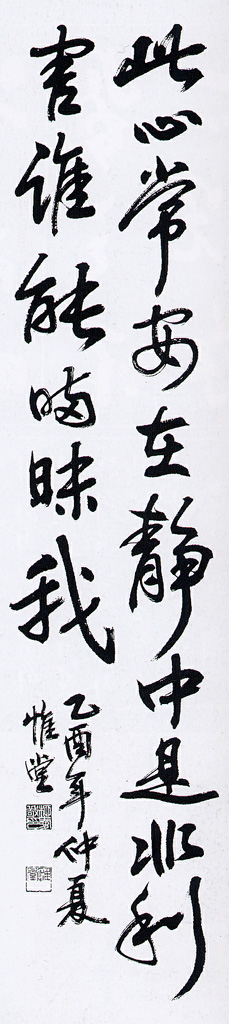 此心常安在静中是非利
害谁能瞒昧我
乙酉年仲夏
惟堂